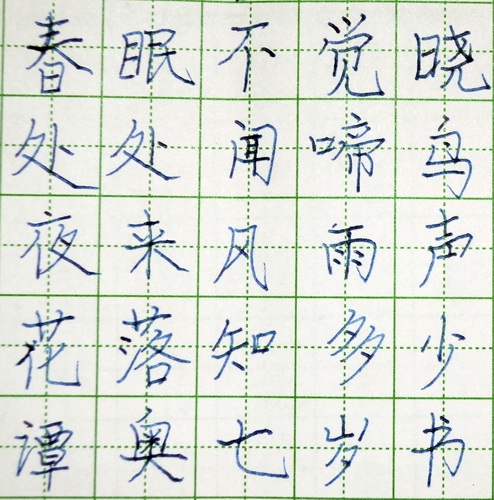 春眠不觉晓
处处闻啼鸟
夜来风雨声
花落知多少
谭奥七岁书